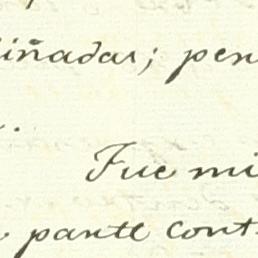 iñadas; pen
Fue mi
pante cont